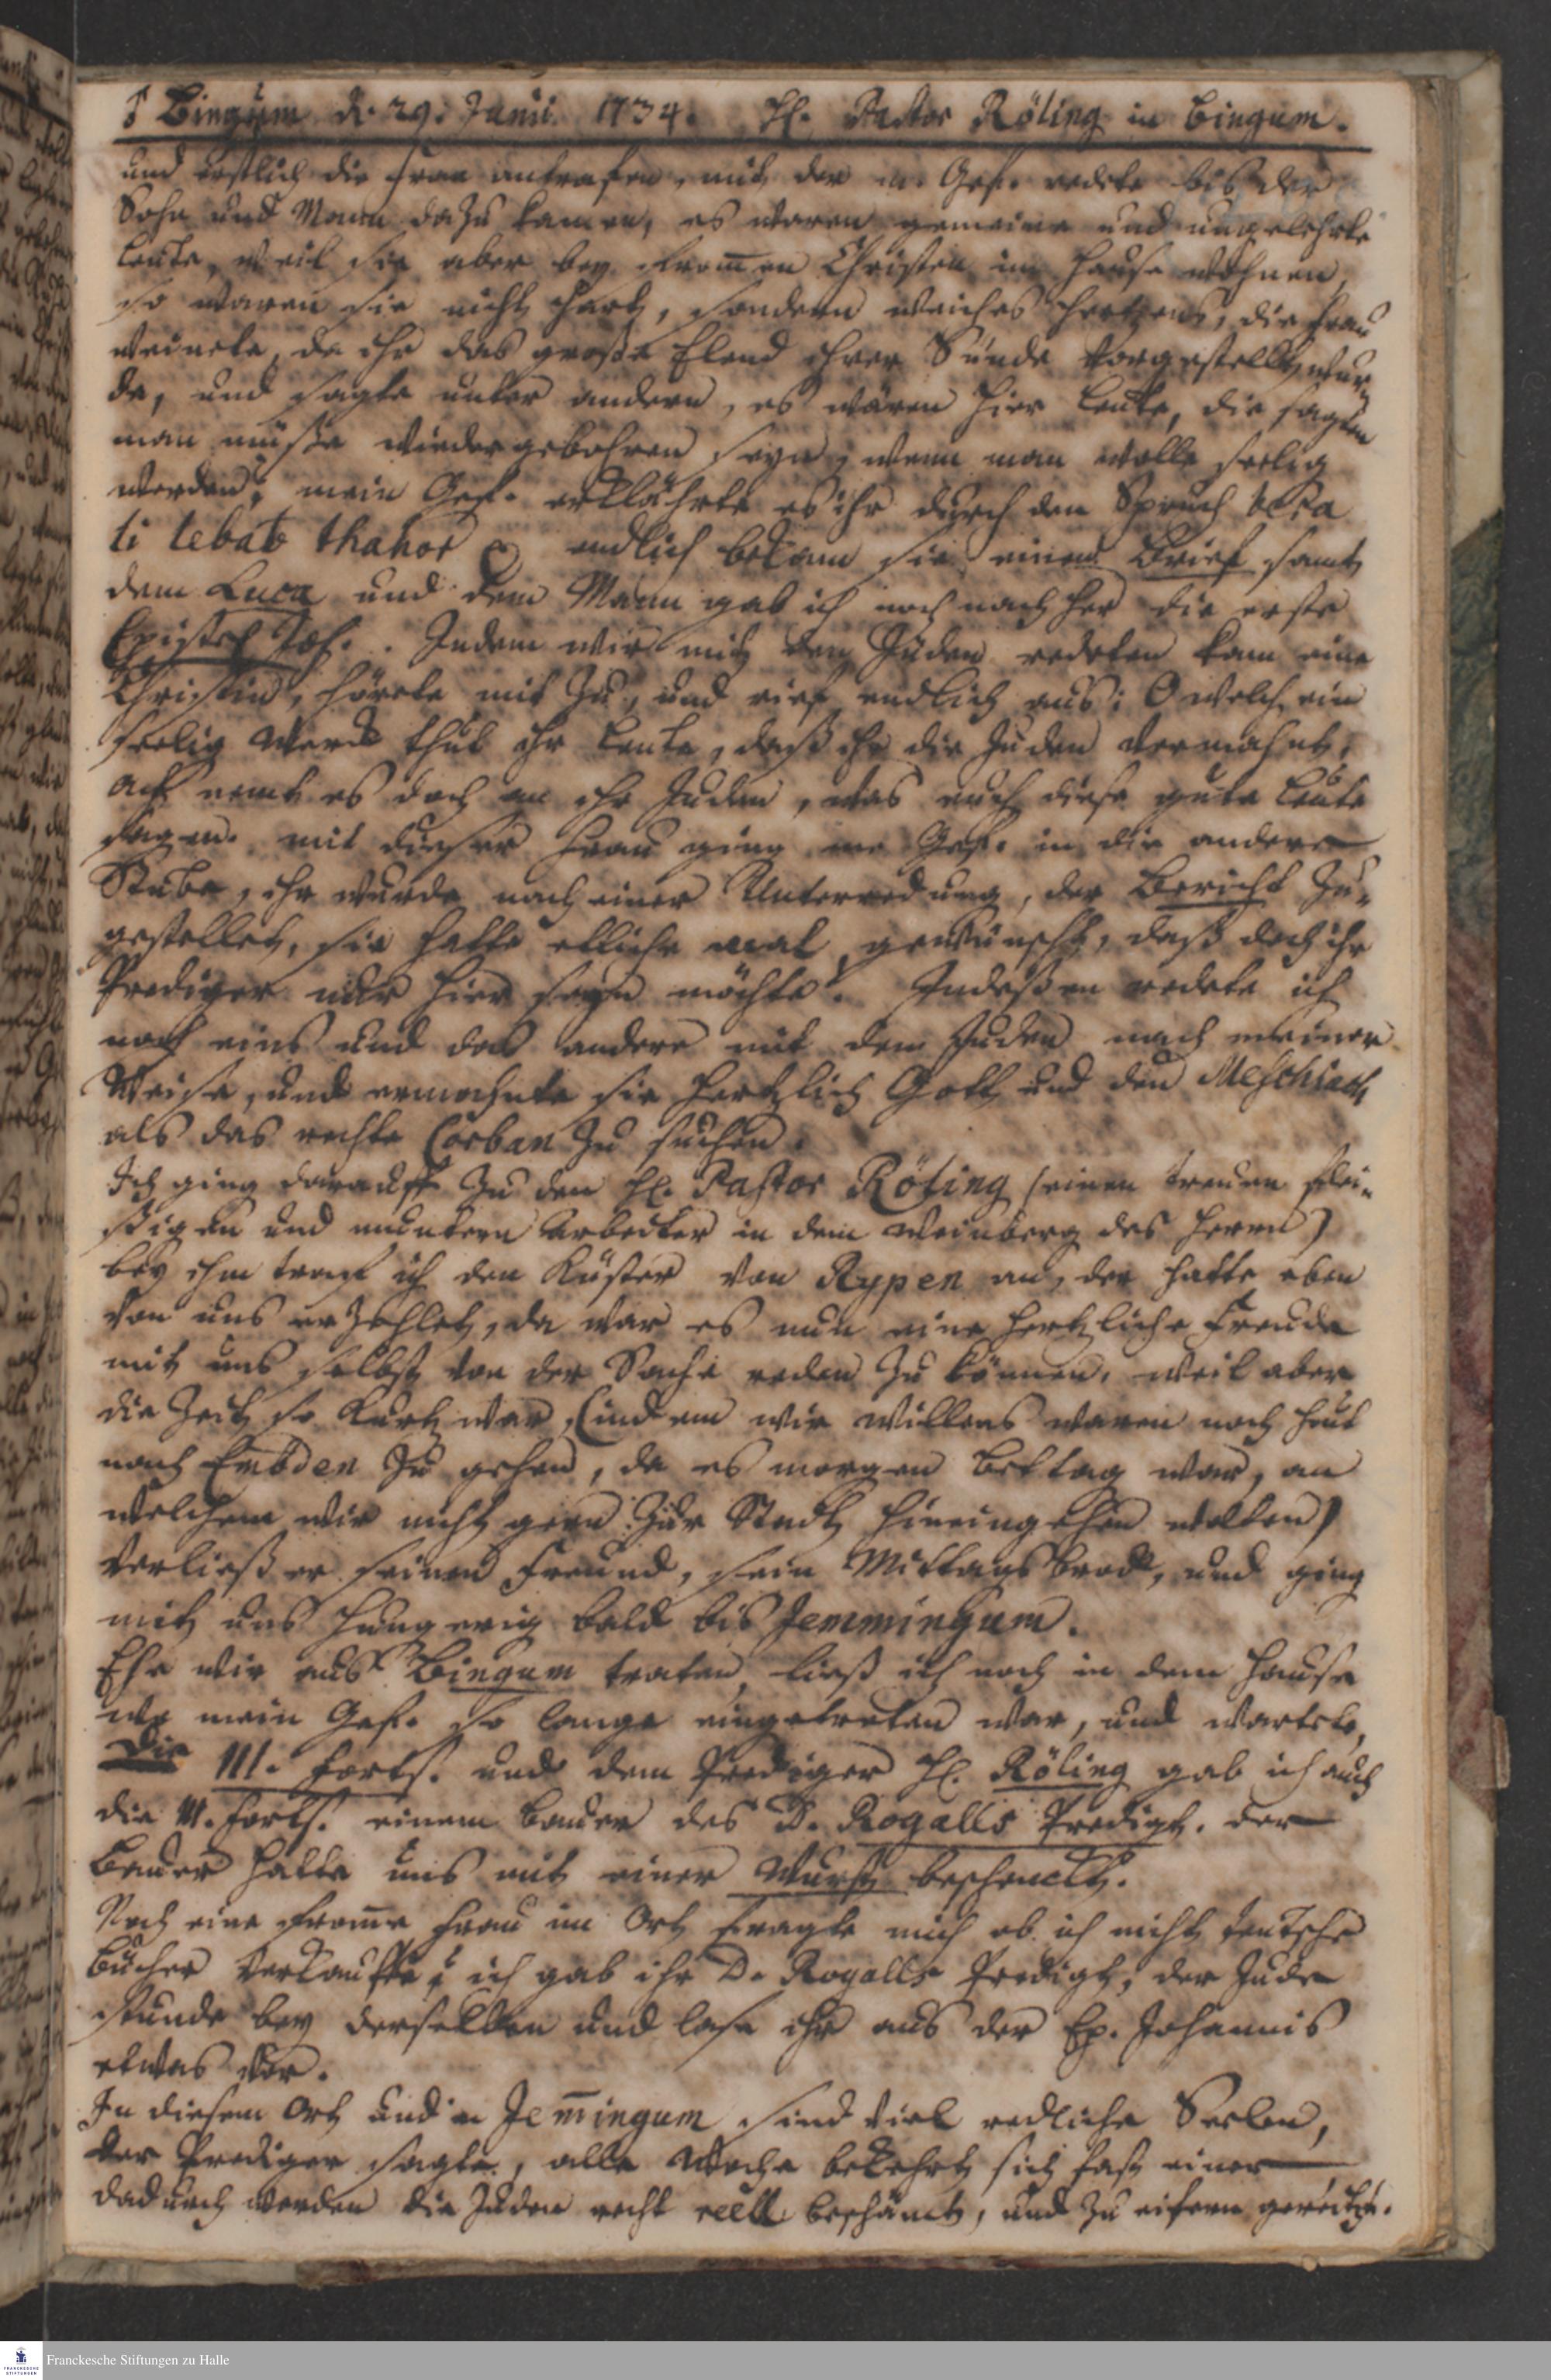 Bingum d. 29. Junii. 1734. H. Pastor Röling in Bingum.
und erstlich die Frau antrafen, mit der m. Gef. redete bis der
Sohn und Mann dazu kamen, es waren gemeine und ungelehrte
Leute, weil sie aber bey from̅en Christen im Hause wohnen,
so waren sie nicht hart, sondern weiches Hertzens, die Frau
weinete, da ihr das große Elend ihrer Sünde vorgestellt wur-
de, und sagte unter andern, es wären hier Leute, die sagten
man müße wiedergebohren seyn, wenn man wolle seelig
werden; mein Gef. erklährte es ihr durch den Spruch bera
li lebab thahor endlich bekam sie einen Brief samt
dem Luca und dem Mann gab ich noch nachher die erste
Epistel Joh. Indem wir mit den Juden redeten kam eine
Christin, hörete mit zu, und rief endlich aus: O welch ein
seelig Werck thut ihr Leute, daß ihr die Juden vermahnt,
ach nemt es doch an ihr Juden, was euch diese gute Leute
sagen. mit dieser Frau ging m Gef. in die andere
Stube, ihr wurde nach einer Unterredung, der Bericht zu-
gestellet, sie hatte etliche mal gewünscht, daß doch ihr
Prediger nur hier seyn möchte. Indeßen redete ich
noch eins und das andere mit dem Juden nach meiner
Weise, und ermahnte sie hertzlich Gott und den Meschiach
als das rechte Corban zu suchen.
Ich ging darauff zu den H. Pastor Röling (einen treuen flei-
ßigen und muntern Arbeiter in dem Weinberg des Herrn)
bey ihm traf ich den Küster von Rypen an, der hatte eben
von uns erzehlet, da war es nun eine hertzliche Freude
mit uns selbst von der Sache reden zu können, weil aber
die Zeit so kurtz war, (indem wir willens waren noch heut
nach Embden zu gehen, da es morgen Bettag war, an
welchem wir nicht gern zur Stadt hineingehen wolten)
verließ er seinen Freund, sein Mittagsbrodt, und ging
mit uns hungerig bald bis Jemmingum.
Ehe wir aus Bingum traten, ließ ich noch in dem Hause
wo mein Gef. so lange eingetreten war, und wartete,
Die III. Forts. und dem Prediger H. Röling gab ich auch
die Forts. einem Bauer des D. Rogalls Predigt. der
Bauer hatte uns mit einer Wurst beschenckt.
Noch eine from̅e Frau im Ort fragte mich ob ich nicht teutsche
Bücher verkauffte; ich gab ihr D. Rogalls Predigt, der Jude
stunde bey derselben und lase ihr aus der Ep. Johannis
etwas vor.
In diesem Ort und in Jem̅ingum sind viel redliche Seelen,
der Prediger sagte, alle Woche bekehrt sich fast einer
dadurch werden die Juden recht reell beschämt, und zu eifern gereitzt.
Franckesche Stiftungen zu Halle